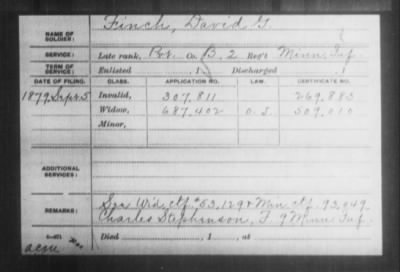 NAME OF SOLDIER: Finch, David G.
SERVICE: Late rank, Pvt. Co. B, 2 Reg't Minn. Inf.
TERM OF SERVICE: Enlisted , 1 Discharged , 1
DATE OF FILING. CLASS. APPLICATION NO. LAW. CERTIFICATE NO.
1879 Sept. 5 Invalid, 307,811 269,883
Widow, 687,402 O. L. 509,010
Minor,
ADDITIONAL SERVICES:
REMARKS: See Wid. ctf. 53,129 & Min. ctf. 93,049
Charles Stephenson, F 9 Minn Inf.
Died , 1 , at